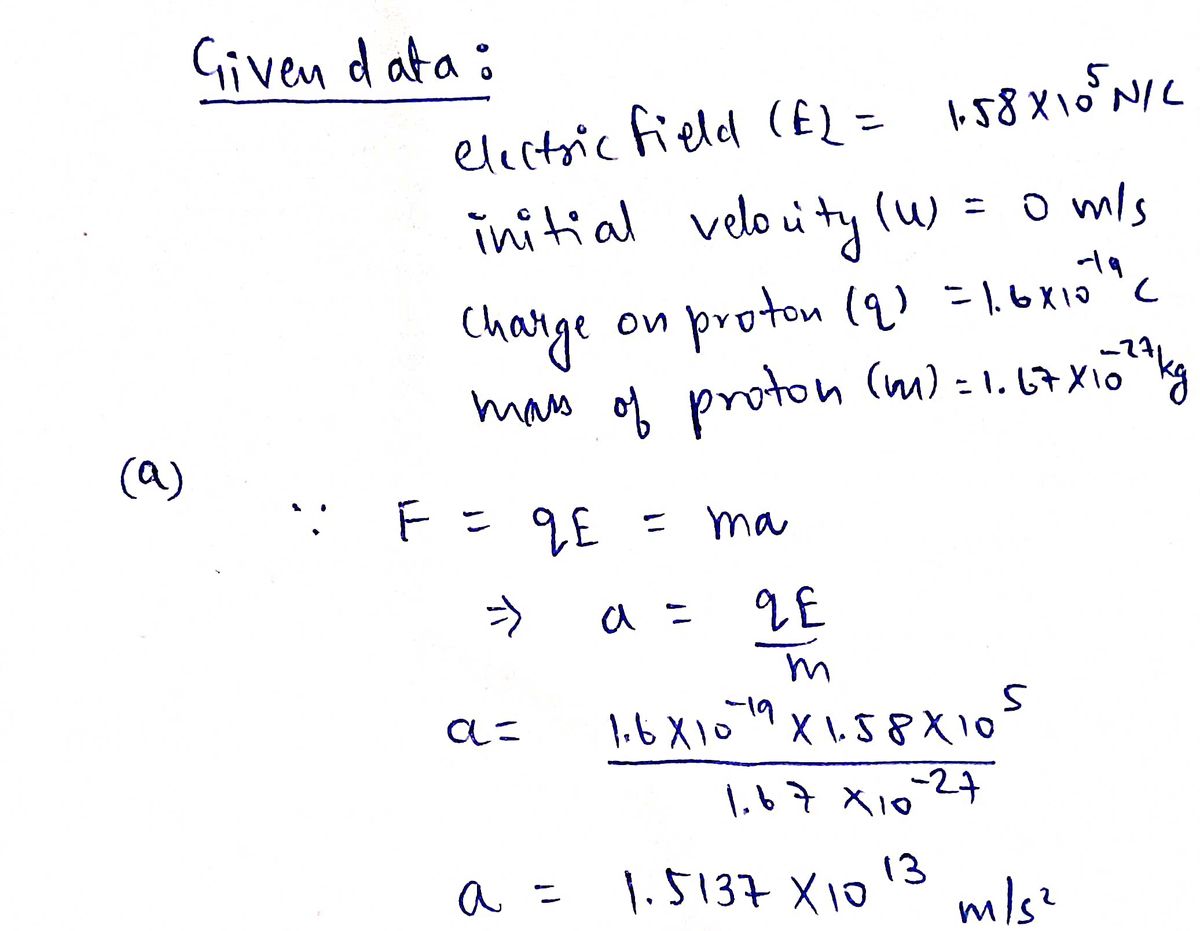 Given data:
electric field (E) = 1.58×10⁵ N/C
initial velocity (u) = 0 m/s
Charge on proton (q) = 1.6×10⁻¹⁹ C
mass of proton (m) = 1.67×10⁻²⁷ kg
(a)
∵ F = qE = ma
⇒ a = qE/m
a = 1.6×10⁻¹⁹ × 1.58×10⁵ / 1.67×10⁻²⁷
a = 1.5137×10¹³ m/s²